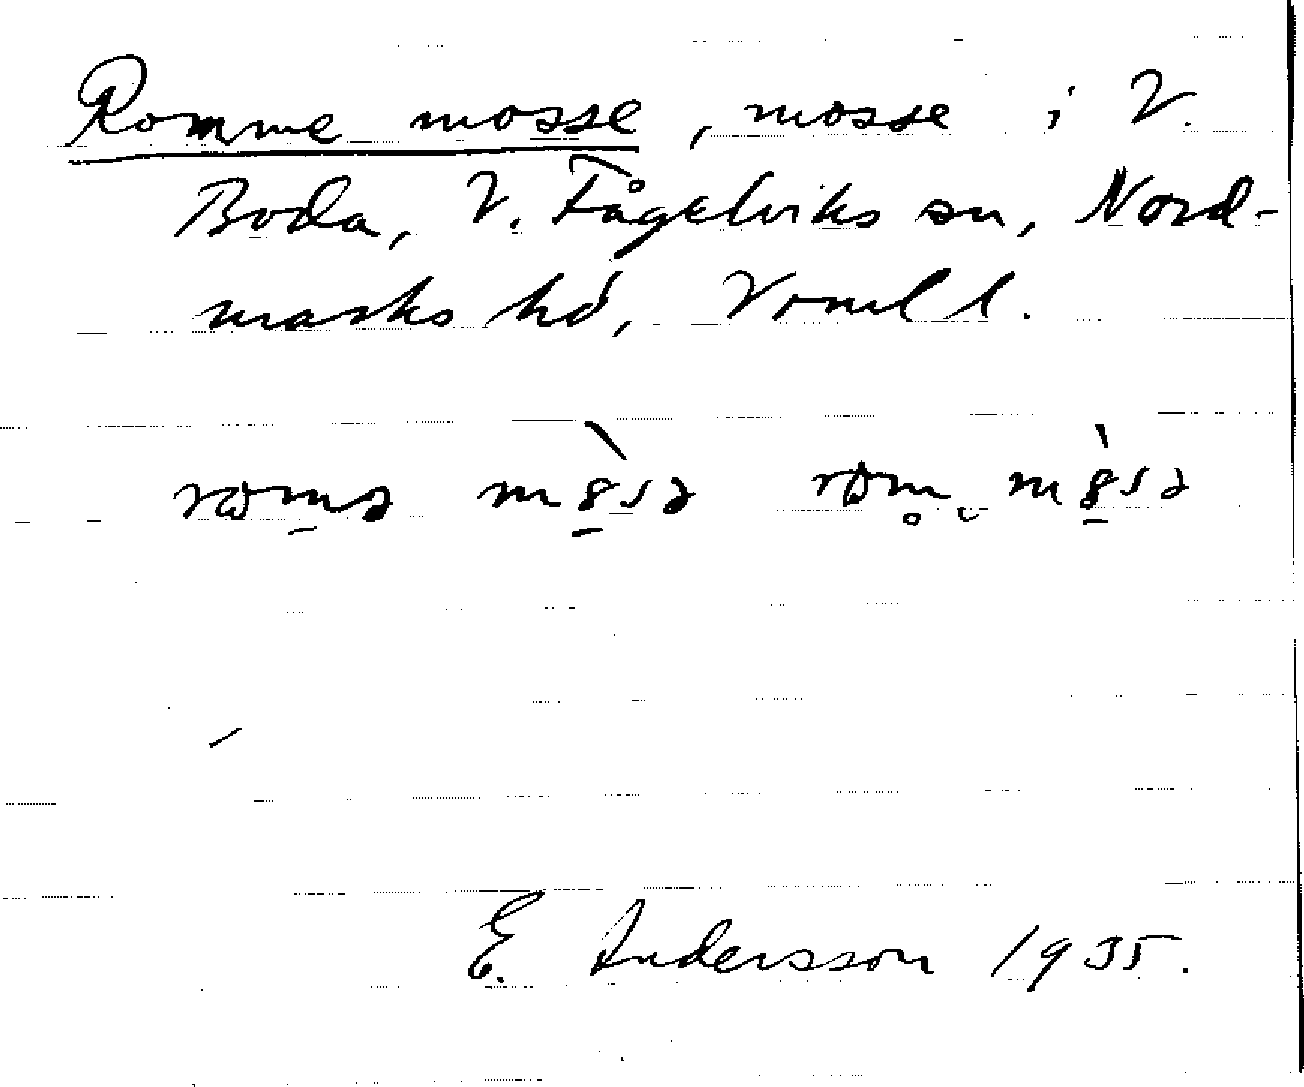 Romme mosse, mosse i V.
Boda, V. Fågelviks sn, Nord-
marks hd, Vrml l.
E. Andersson 1935.